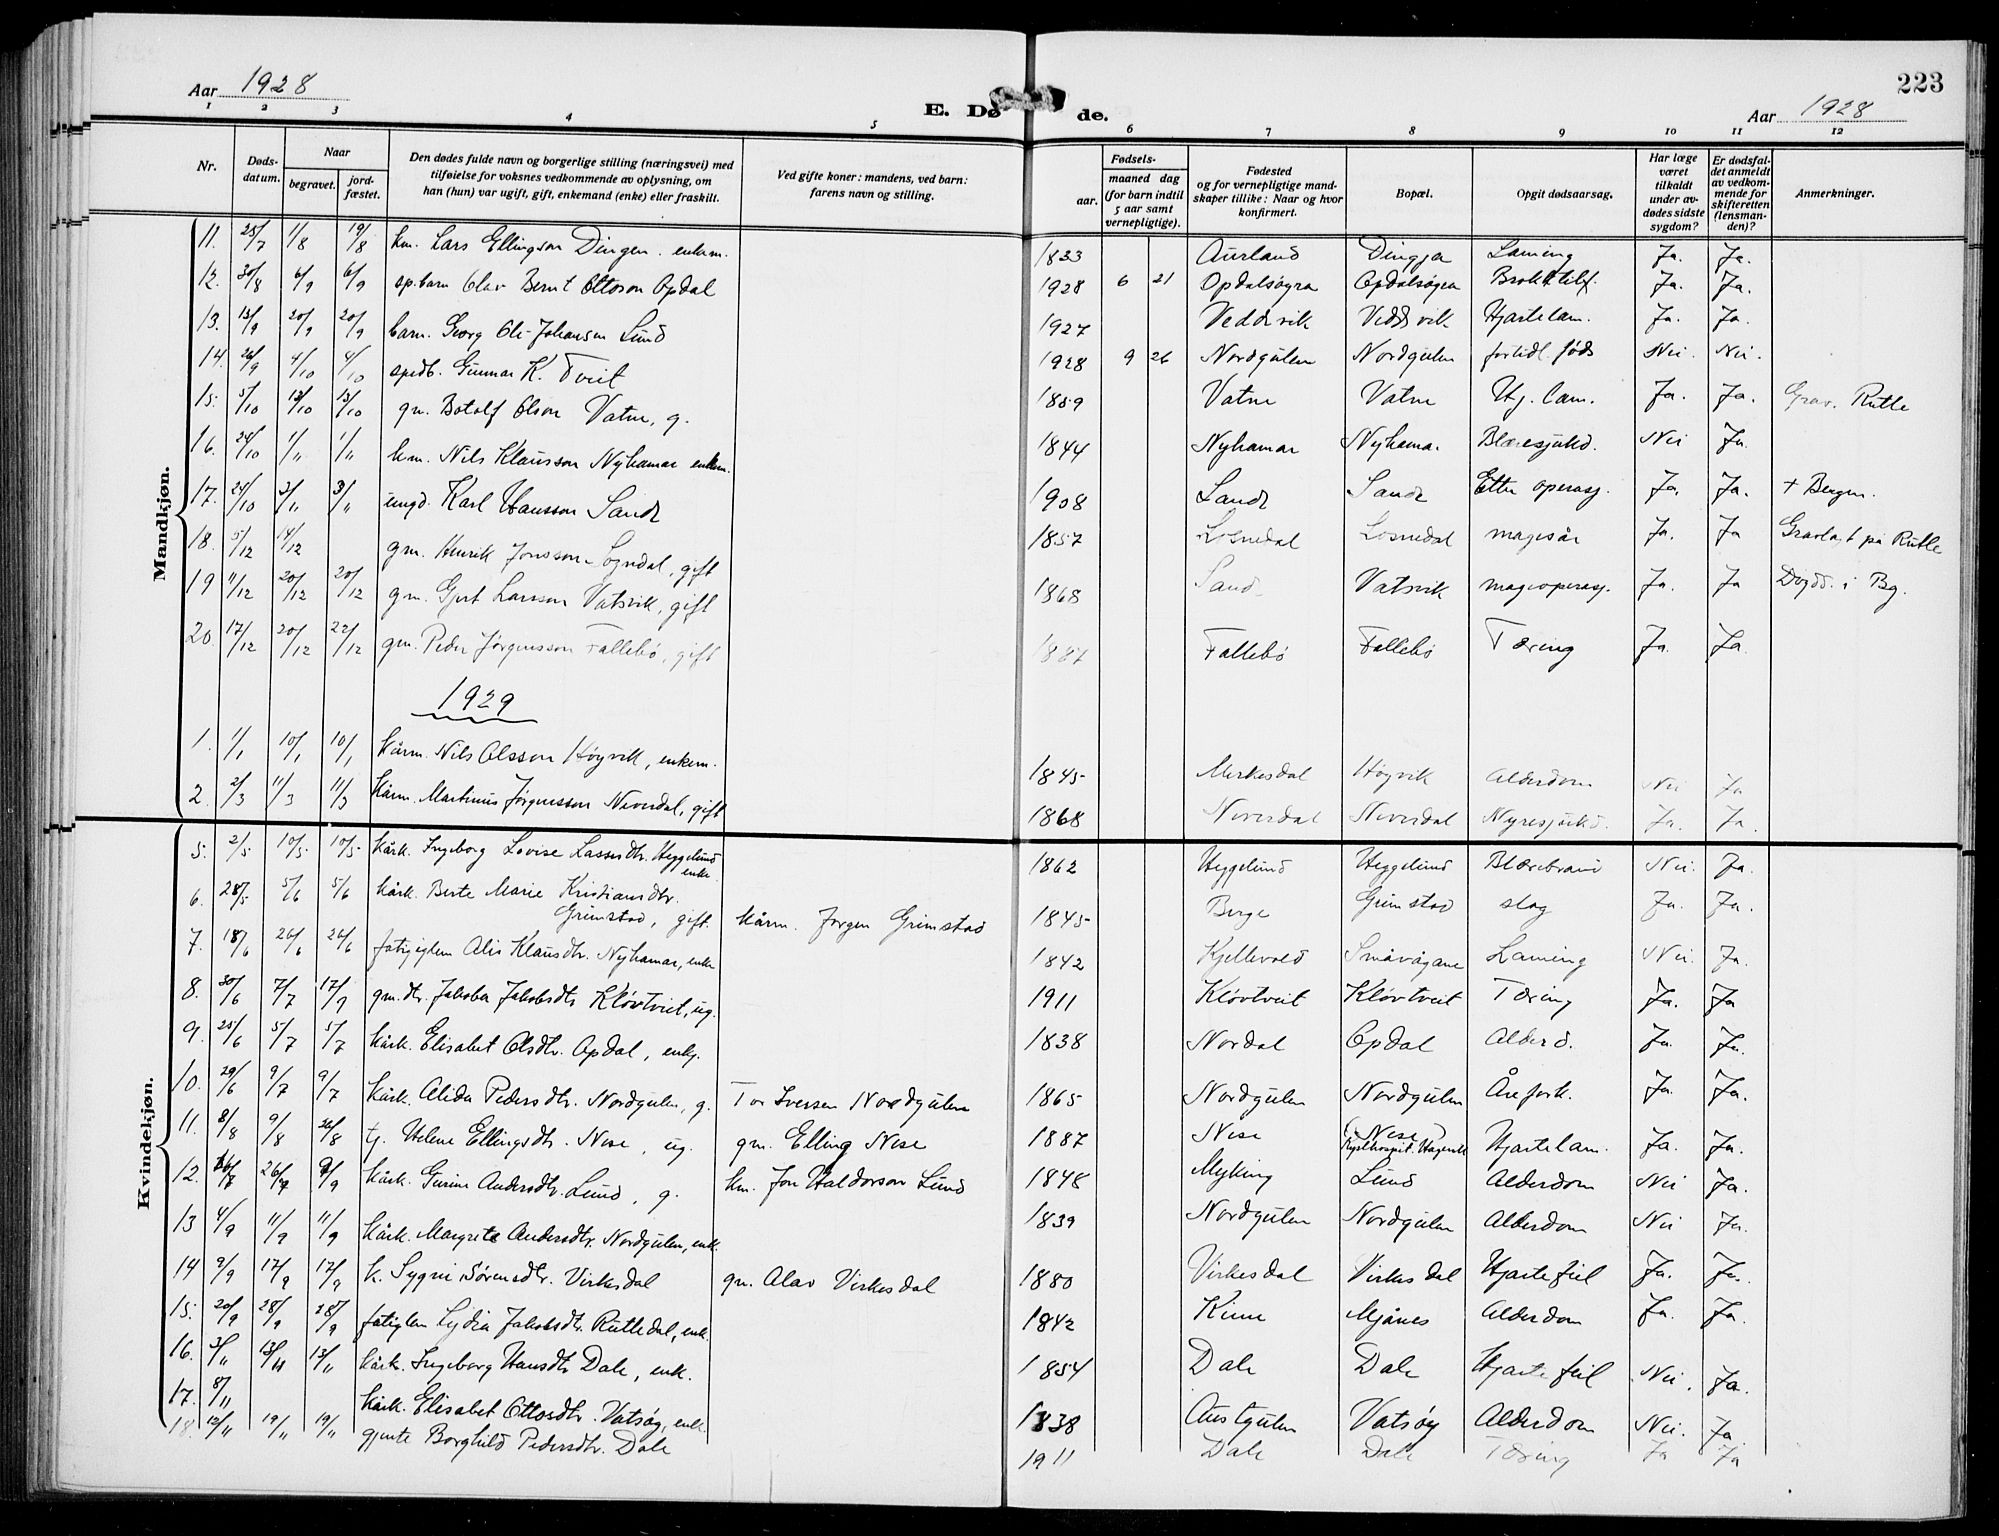 Aar 1928
E. Døde.
Aar 1928
223
1 2 3 4 5 6 7 8 9 10 11 12
Nr.
Døds-datum.
Naar
begravet.
jord-fæstet.
Den dødes fulde navn og borgerlige stilling (næringsvei) med
tilføielse for voksnes vedkommende av oplysning, om
han (hun) var ugift, gift, enkemand (enke) eller fraskilt.
Ved gifte koner: mandens, ved barn:
farens navn og stilling.
Fødsels-
aar.
maaned dag
(for barn indtil
5 aar samt
vernepligtige).
Fødested
og for vernepligtige mand-
skaper tillike: Naar og hvor
konfirmert.
Bopæl.
Opgit dødsaarsag.
Har læge
været
tilkaldt
under av-
dødes sidste
sygdom?
Er dødsfal-
det anmeldt
av vedkom-
mende for
skifteretten
(lensman-
den)?
Anmerkninger.
Mandkjøn.
11. 25/7 1/8 19/8 km. Lars Ellingson Dingen. enkem. 1833 Aurland Dingja Laming Ja. Ja.
12. 30/8 6/9 6/9 sp.barn Olav Bernt Ottoson Opdal 1928 6 21 Opdalsøyra Opdalsøyra Brokktilf. Ja. Ja.
13. 13/9 20/9 20/9 barn. Georg Ole Johansen Lund 1927 Veddvik Veddvik Hjartelam. Ja. Ja.
14. 26/9 4/10 4/10 spedb. Gunnar K. Tveit 1928 9 26 Nordgulen Nordgulen fortidl. føds Nei. Nei.
15. 5/10 13/10 13/10 gm. Botolf Olson Vatne, g. 1859 Vatne Vatne Hj. lam. Ja. Ja. Grav. Rutle
16. 24/10 1/11 1/11 km. Nils Klausson Nyhamar enkem. 1844 Nyhamar Nyhamar Blæresjukd. Nei Ja.
17. 24/10 3/11 3/11 ungd. Karl Hansson Sande 1908 Sande Sande Etter operasj. Ja. Ja. + Bergen.
18. 5/12 14/12 gm. Henrik Jonsson Losnedal, gift 1857 Losnedal Losnedal magesår Ja. Ja Gravlagt på Rutle
19 11/12 20/12 20/12 gm. Gjert Larsson Vatsvik, gift 1868 Sand Vatsvik mageoperasj. Ja. Ja Døydd i Bg.
20. 17/12 20/12 22/12 gm. Peder Jørgensson Fallebø, gift 1887 Fallebø Fallebø Tæring Ja. Ja.
1929
1. 1/1 10/1 10/1 kårm. Nils Olsson Høyvik, enkem. 1845 Mirkesdal Høyvik Alderdom Nei Ja
2. 2/3 11/3 11/3 kårm. Martinus Jørgensson Neverdal, gift 1868 Neverdal Neverdal Nyresjukd. Ja. Ja.
Kvindekjøn.
5. 2/5 10/5 10/5 kårk. Ingeborg Lovise Lassesdtr. Heggelund enke. 1862 Heggelund Heggelund Blærebrand Nei. Ja.
6. 28/5 5/6 5/6 kårk. Berte Marie Kristiansdtr.
Grimstad, gift. kårm. Jørgen Grimstad 1845 Berge Grimstad slag Ja. Ja.
7. 18/6 26/6 26/6 fatigiglem Alis Klausdtr. Nyhamar, enke 1842 Kjellevold Småvågane Laming Nei. Ja.
8. 30/6 7/7 17/9 gm.dtr. Jakobea Jakobsdtr Kløvtveit, ug. 1911 Kløvtveit Kløvtveit Tæring Ja. Ja
9. 25/6 5/7 5/7 kårk. Elisabet Olsdtr. Opdal, enkj. 1838 Nordal Opdal Alderd. Ja. Ja.
10. 29/6 9/7 9/7 kårk. Alida Pedersdtr. Nordgulen, g. Tor Iversen Nordgulen 1865 Nordgulen Nordgulen Årefork. Ja. Ja.
11. 8/8 9/8 26/8 tj. Helene Ellingsdtr. Nese, ug. gm. Elling Nese 1887 Nese (Nese) Kysthospit. Hagevik Hjartelam. Ja. Ja.
12. 26/9 9/9 kårk. Gurine Andersdtr. Lund, g. km. Jon Haldorson Lund 1848 Myking Lund Alderdom Nei Ja.
13 4/9 11/9 11/9 kårk. Margrete Andersdtr. Nordgulen, enk. 1839 Nordgulen Nordgulen Alderdom Nei Ja.
14 9/9 17/9 17/9 k. Sygni Sørensdtr. Virkesdal gm. Alav Virkesdal 1880 Virkesdal Virkesdal Hjartefeil Ja. Ja.
15. 20/9 28/9 28/9 fatiglem Lydia Jakobsdtr. Rutledal, enk. 1842 Kinne Mjånes Alderdom Ja. Ja.
16. 3/11 13/11 13/11 kårk. Ingeborg Hansdtr Dale, enk. 1854 Dale Dale Hjartefeil Nei. Ja.
17. 8/11 kårk. Elisabet Ottosdtr. Vatsøy, enk. 1838 Austgulen Vatsøy Alderdom Nei. Ja.
18. 12/11 19/11 19/11 gjente Borghild Pedersdtr. Dale 1911 Dale Dale Tæring Ja Ja